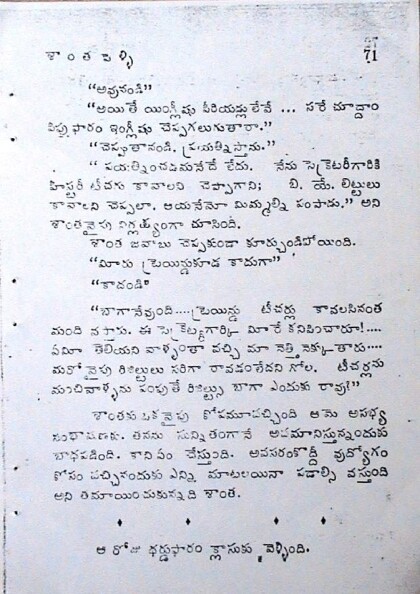 శాంతపెళ్ళి
71
"అవునండి"
"అయితే యింగ్లీషు పీరియడ్లులేవే ... సరే చూద్దాం
ఫిఫ్తుఫారం ఇంగ్లీషు చెప్పగలుగుతారా."
"చెప్పుతానండి. ప్రయత్నిస్తాను."
"ప్రయత్నించడమనేదే లేదు. నేను సెక్రెటరీగారికి
హిస్టరీ టీచరు కావాలని చెప్పాగాని; బి. యే. లిట్టులు
కావాలని చెప్పలా. ఆయనేమో మిమ్మల్ని పంపాడు." అని
శాంతవైపు నిర్లక్ష్యంగా చూసింది.
శాంత జవాబు చెప్పకుండా కూర్చుండిపోయింది.
"మీరు ట్రెయిన్డుకూడ కాదుగా"
"కాదండి"
"బాగానేవుంది....ట్రెయిన్డు టీచర్లు కావలసినంత
మంది వస్తారు. ఈ సెక్రెట్రీగార్కి మీరే కనిపించారూ!....
ఏమీ తెలియని వాళ్ళంతా వచ్చి మా నెత్తి నెక్కుతారు....
మరో వైపు రిజల్టులు సరిగా రావడంలేదని గోల. టీచర్లను
మంచివాళ్ళను పంపుతే రిజల్ట్సు బాగా ఎందుకు రావు!"
శాంతకు ఒకవైపు కోపమూవచ్చింది ఆమె అసభ్య
సంభాషణకు. తనను సున్నితంగానే అపమానిస్తున్నందుకు
బాధపడింది. కాని ఏం చేస్తుంది. అవసరంకొద్దీ వుద్యోగం
కోసం వచ్చినందుకు ఎన్ని మాటలయినా పడాల్సి వస్తుంది
అని తమాయించుకున్నది శాంత.
ఆ రోజు థర్డుఫారం క్లాసుకు వెళ్ళింది.